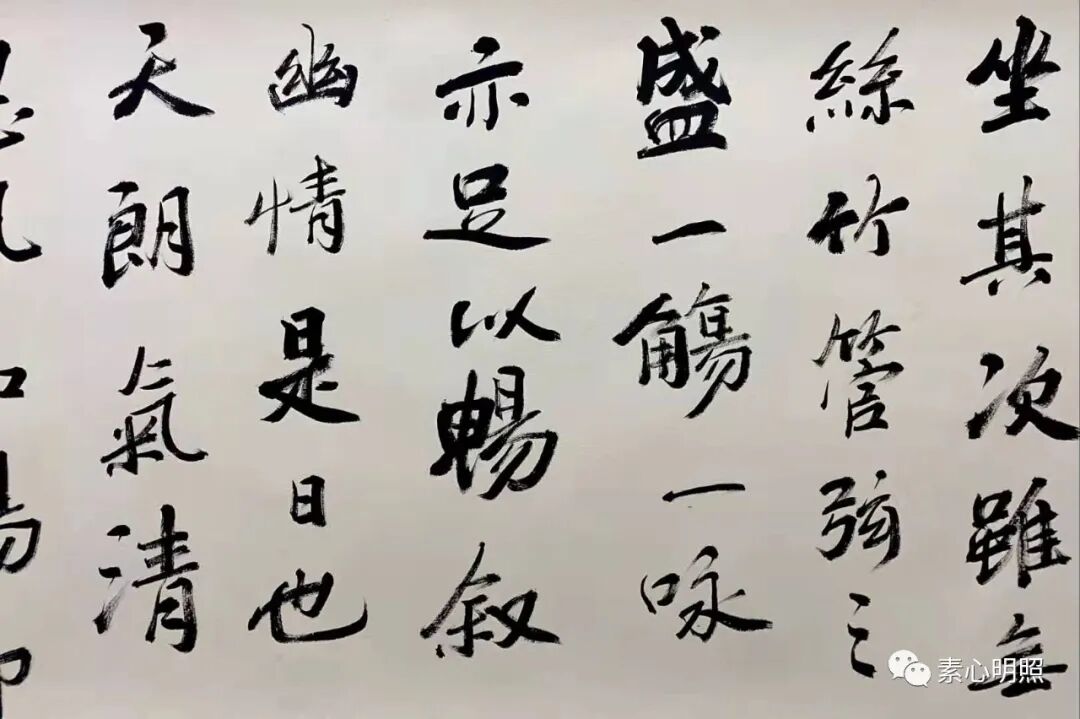 坐其次雖無
絲竹管弦之
盛一觴一咏
亦足以暢叙
幽情是日也
天朗氣清
惠風和暢仰
素心明照